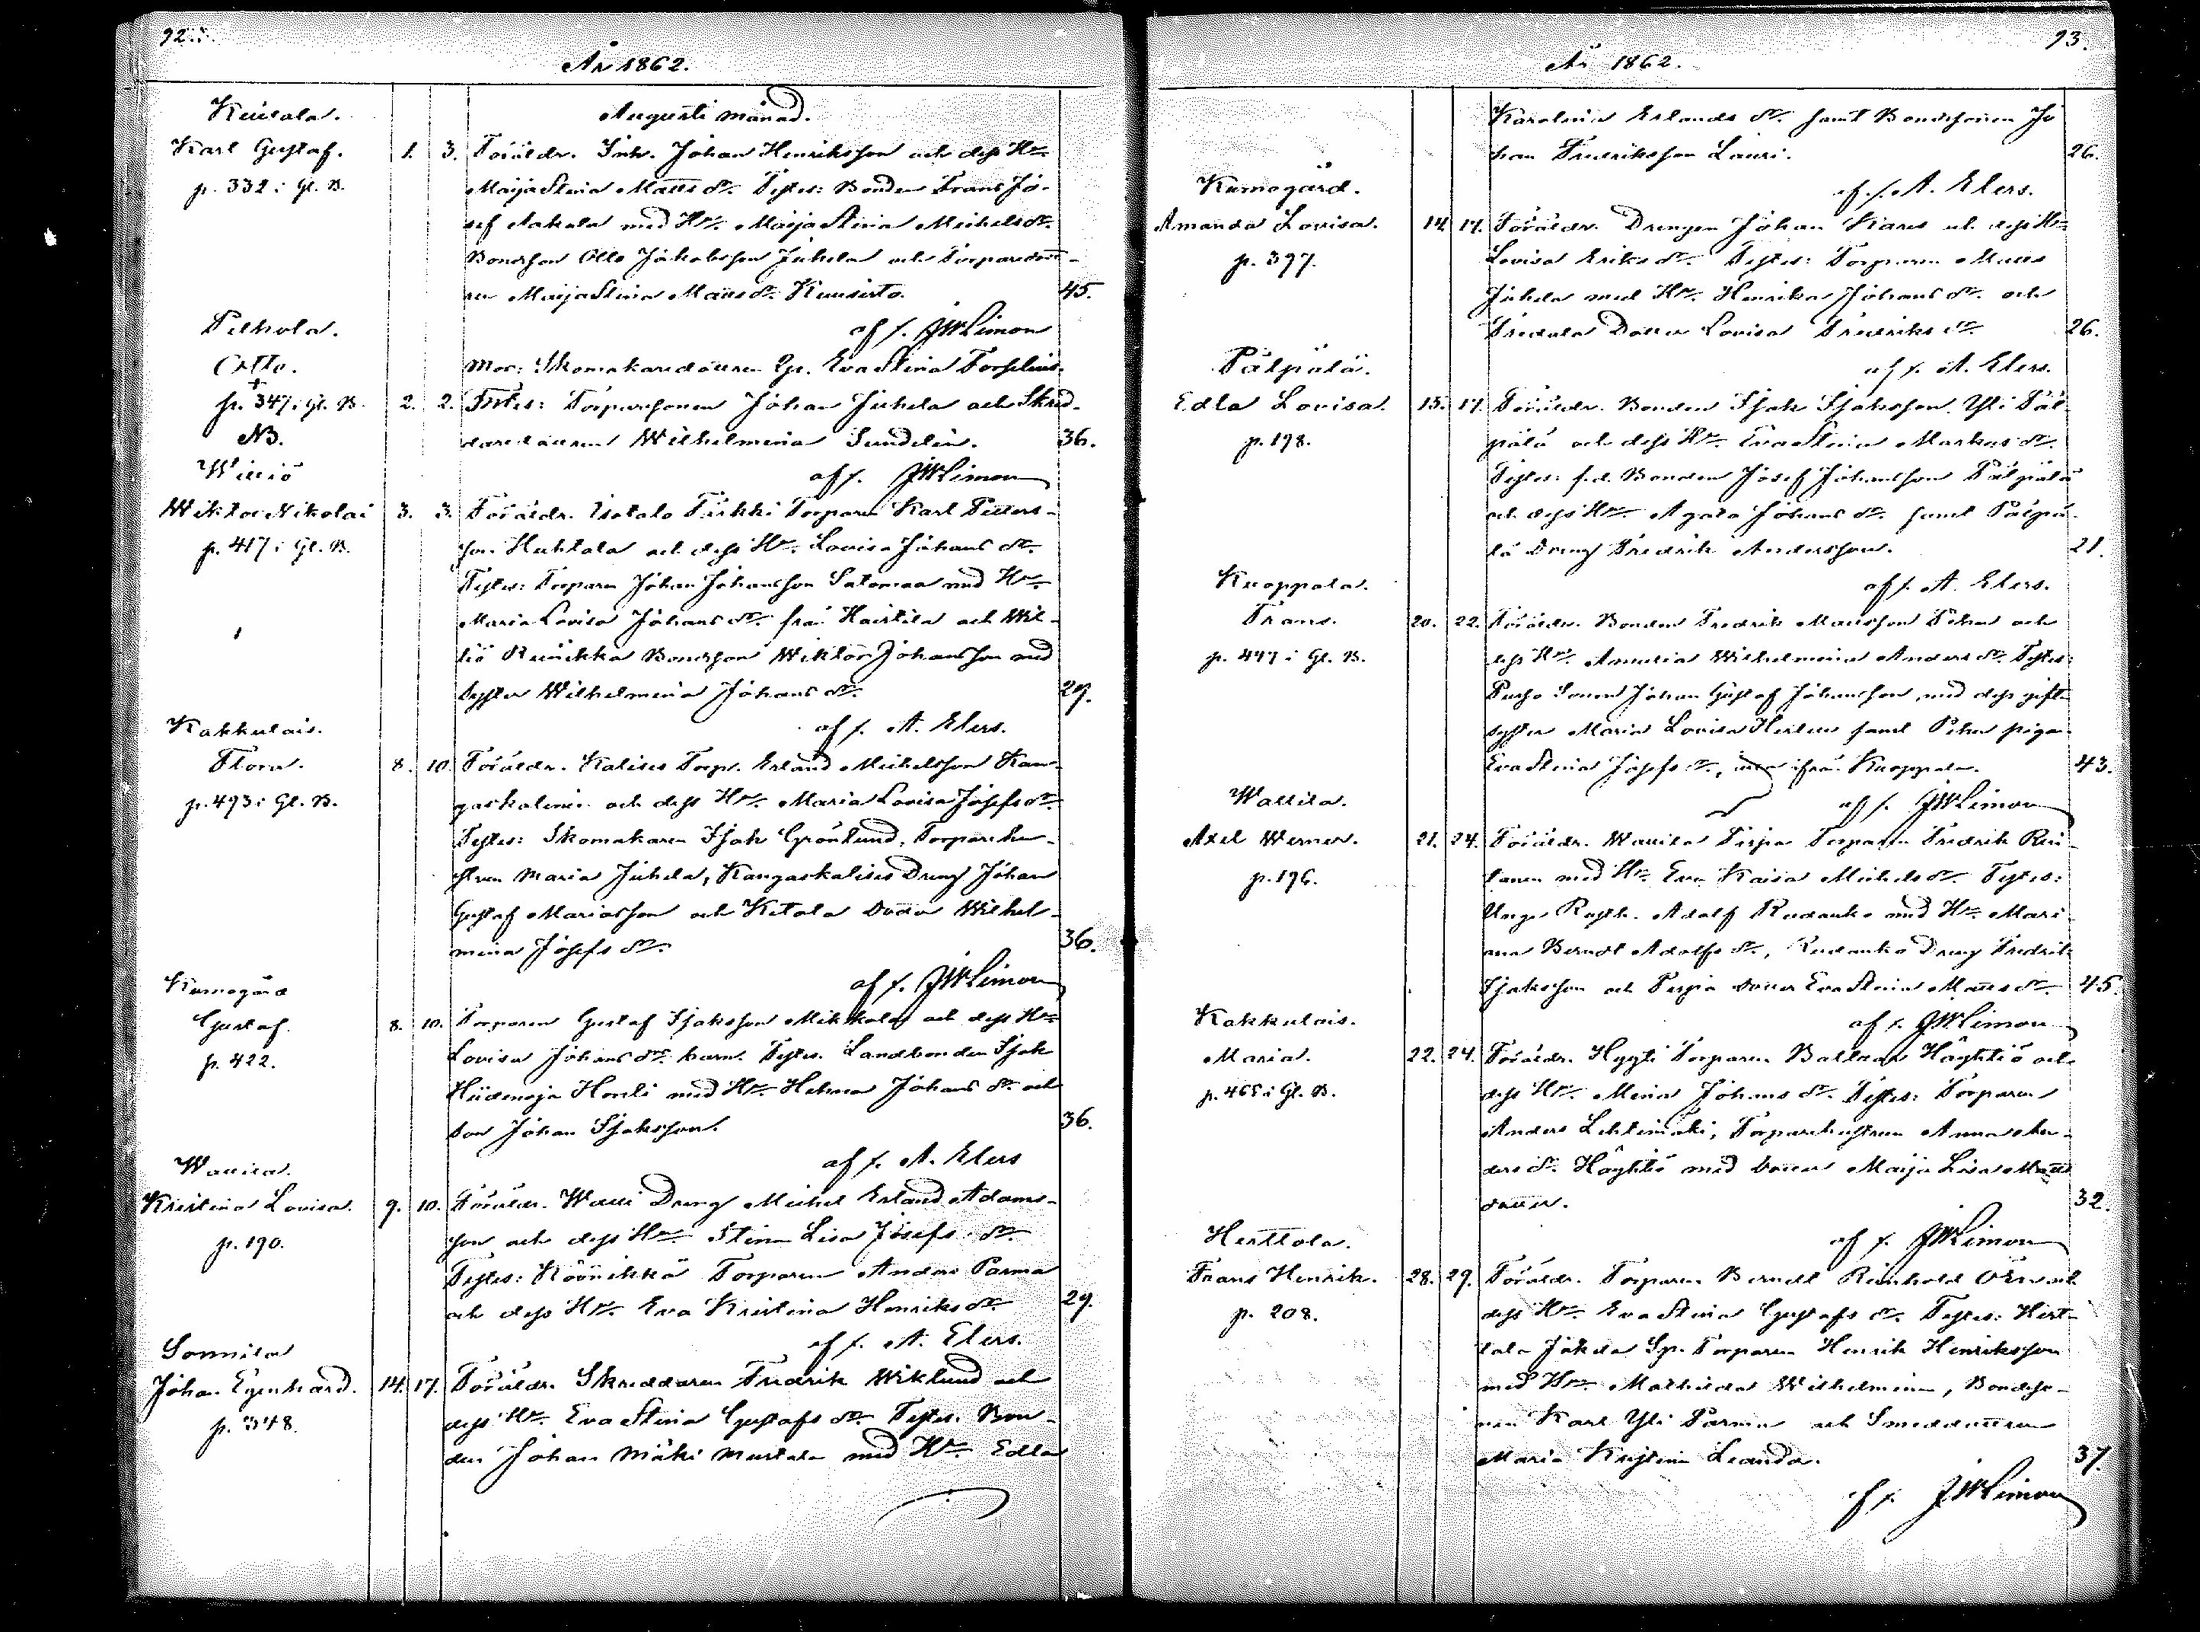 92.
År 1862.
Kuivala.
Augusti månad.
Karl Gustaf. 1. 3. Föräldr. Inh. Johan Henriksson och dess Hu
p. 332 i Gl. B. Maija Stina Matts dr. Testes: Bonden Frans Jo-
sef Aakula med Hu. Maija Stina Michels dr.
Bondeson Otto Jakobsson Juhela och Torparedott-
ren Maija Stina Matts dr. Kuusisto. 45.
af f. JWLimon
Peltola.
Otto. Mor: Skomakaredottren Qp. Eva Stina Forselius.
p. 347 i Gl. B. 2. 2. Testes: Torparesonen Johan Juhela och Skräd-
NB. daredottren Wilhelmina Sundelin. 36.
af f. JWLimon
Williö
Wiktor Nikolai 3. 3. Föräldr. Isotalo Pirkki Torparen Karl Petters-
p. 417 i Gl. B. son Huhtala och dess Hu. Lovisa Johans dr.
Testes: Torparen Johan Johansson Salomaa med Hu
Maria Lovisa Johans dr. från Hairtila och Wil-
liö Ruinikka Bondeson Wiktor Johansson med
Syster Wilhelmina Johans dr. 29.
af f. A. Elers.
Kakkulais.
Flora. 8. 10. Föräldr. Kalises Torp. Erland Michelsson Kan-
p. 493 i Gl. B. gaskalises och dess Hu. Maria Lovisa Josefs dr.
Testes: Skomakaren Isak Grönlund, Torparehu-
strun Maria Juhela, Kangaskalises Dreng Johan
Gustaf Mariasson och Ketola Dotter Wilhel-
mina Josefs dr. 36.
af f. JWLimon
Kumogård
Gustaf. 8. 10. Torparen Gustaf Isaksson Mikkola och dess Hu
p. 422. Lovisa Johans dr. barn. Testes. Landbonden Isak
Hiidenoja Honli med Hu. Helena Johans dr. och
Son Johan Isaksson. 36.
af f. A. Elers
Wallila.
Kristina Lovisa. 9. 10. Föräldr. Walli Dreng Michel Erland Adams-
p. 190. son och dess Hu Stina Lisa Josefs dr.
Testes: Köönikkä Torparen Anders Parma
och dess Hu. Eva Kristina Henriks dr. 29.
af f. A. Elers.
Sonnila
Johan Egenhard. 14. 17. Föräldr. Skreddaren Fredrik Wiklund och
p. 348. dess Hu. Eva Stina Gustafs dr. Testes: Bon-
den Johan Mäki Mustala med Hu Edla
93.
År 1862.
Karolina Erlands dr. samt Bondesonen Jo
han Fredriksson Lauri. 26.
af f. A. Elers.
Kumogård.
Amanda Lovisa. 14. 17. Föräldr. Drengen Johan Kares och dess Hu
p. 397. Lovisa Eriks dr. Testes: Torparen Matts
Juhela med Hu. Henrika Johans dr. och
Dotter Lovisa Fredriks dr. 26.
af f. A. Elers.
Pälpälä.
Edla Lovisa. 15. 17. Föräldr. Bonden Isak Isaksson Yli Päl-
p. 198. pälä och dess Hu. Eva Stina Markus dr.
Testes: f.d. Bonden Josef Johansson Pälpälä
och dess Hu. Agata Johans dr. samt Pälpä-
lä Dreng Fredrik Andersson. 21.
af f. A. Elers.
Kuoppala.
Frans. 20. 22. Föräldr. Bonden Fredrik Mattsson Pihn och
p. 447 i Gl. B. dess Hu. Amalia Wilhelmina Anders dr. Testes:
Sonen Johan Gustaf Johansson med dess gifta
syster Maria Lovisa samt Pihn piga
Eva Stina Josefs dr., från Kuoppala. 43.
af f. JWLimon
Wallila.
Axel Werner. 21. 24. Föräldr. Wallila Perpa Torparen Fredrik Rei-
p. 196. tanen med Hu. Eva Kaisa Michels dr. Testes:
Unge Rusth. Adolf Rudanko med Hu. Mari-
ana Berndt Adolfs dr., Rudanko Dreng Fredrik
Isaksson och Perpa dotter Eva Stina Matts dr. 45.
af f. JWLimon
Kakkulais.
Maria. 22. 24. Föräldr. Hyyti Torparen Baltzar Höyhtiö och
p. 465 i Gl. B. dess Hu. Mina Johans dr. Testes: Torparen
Anders Lehtimäki, Torparehustrun Anna An-
ders dr. Höyhtiö med dotter Maija Lisa Matts
dotter. 32.
af f. JWLimon
Herttola.
Frans Henrik. 28. 29. Föräldr. Torparen Berndt Reinhold Örn och
p. 208. dess Hu. Eva Stina Gustafs dr. Testes: Hert-
tola Jakola Sp. Torparen Henrik Henriksson
med Hu. Mathilda Wilhelmina, Bondeso-
nen Karl Yli Parma och Smeddottren
Maria Kristina Leanda. 37.
af f. JWLimon